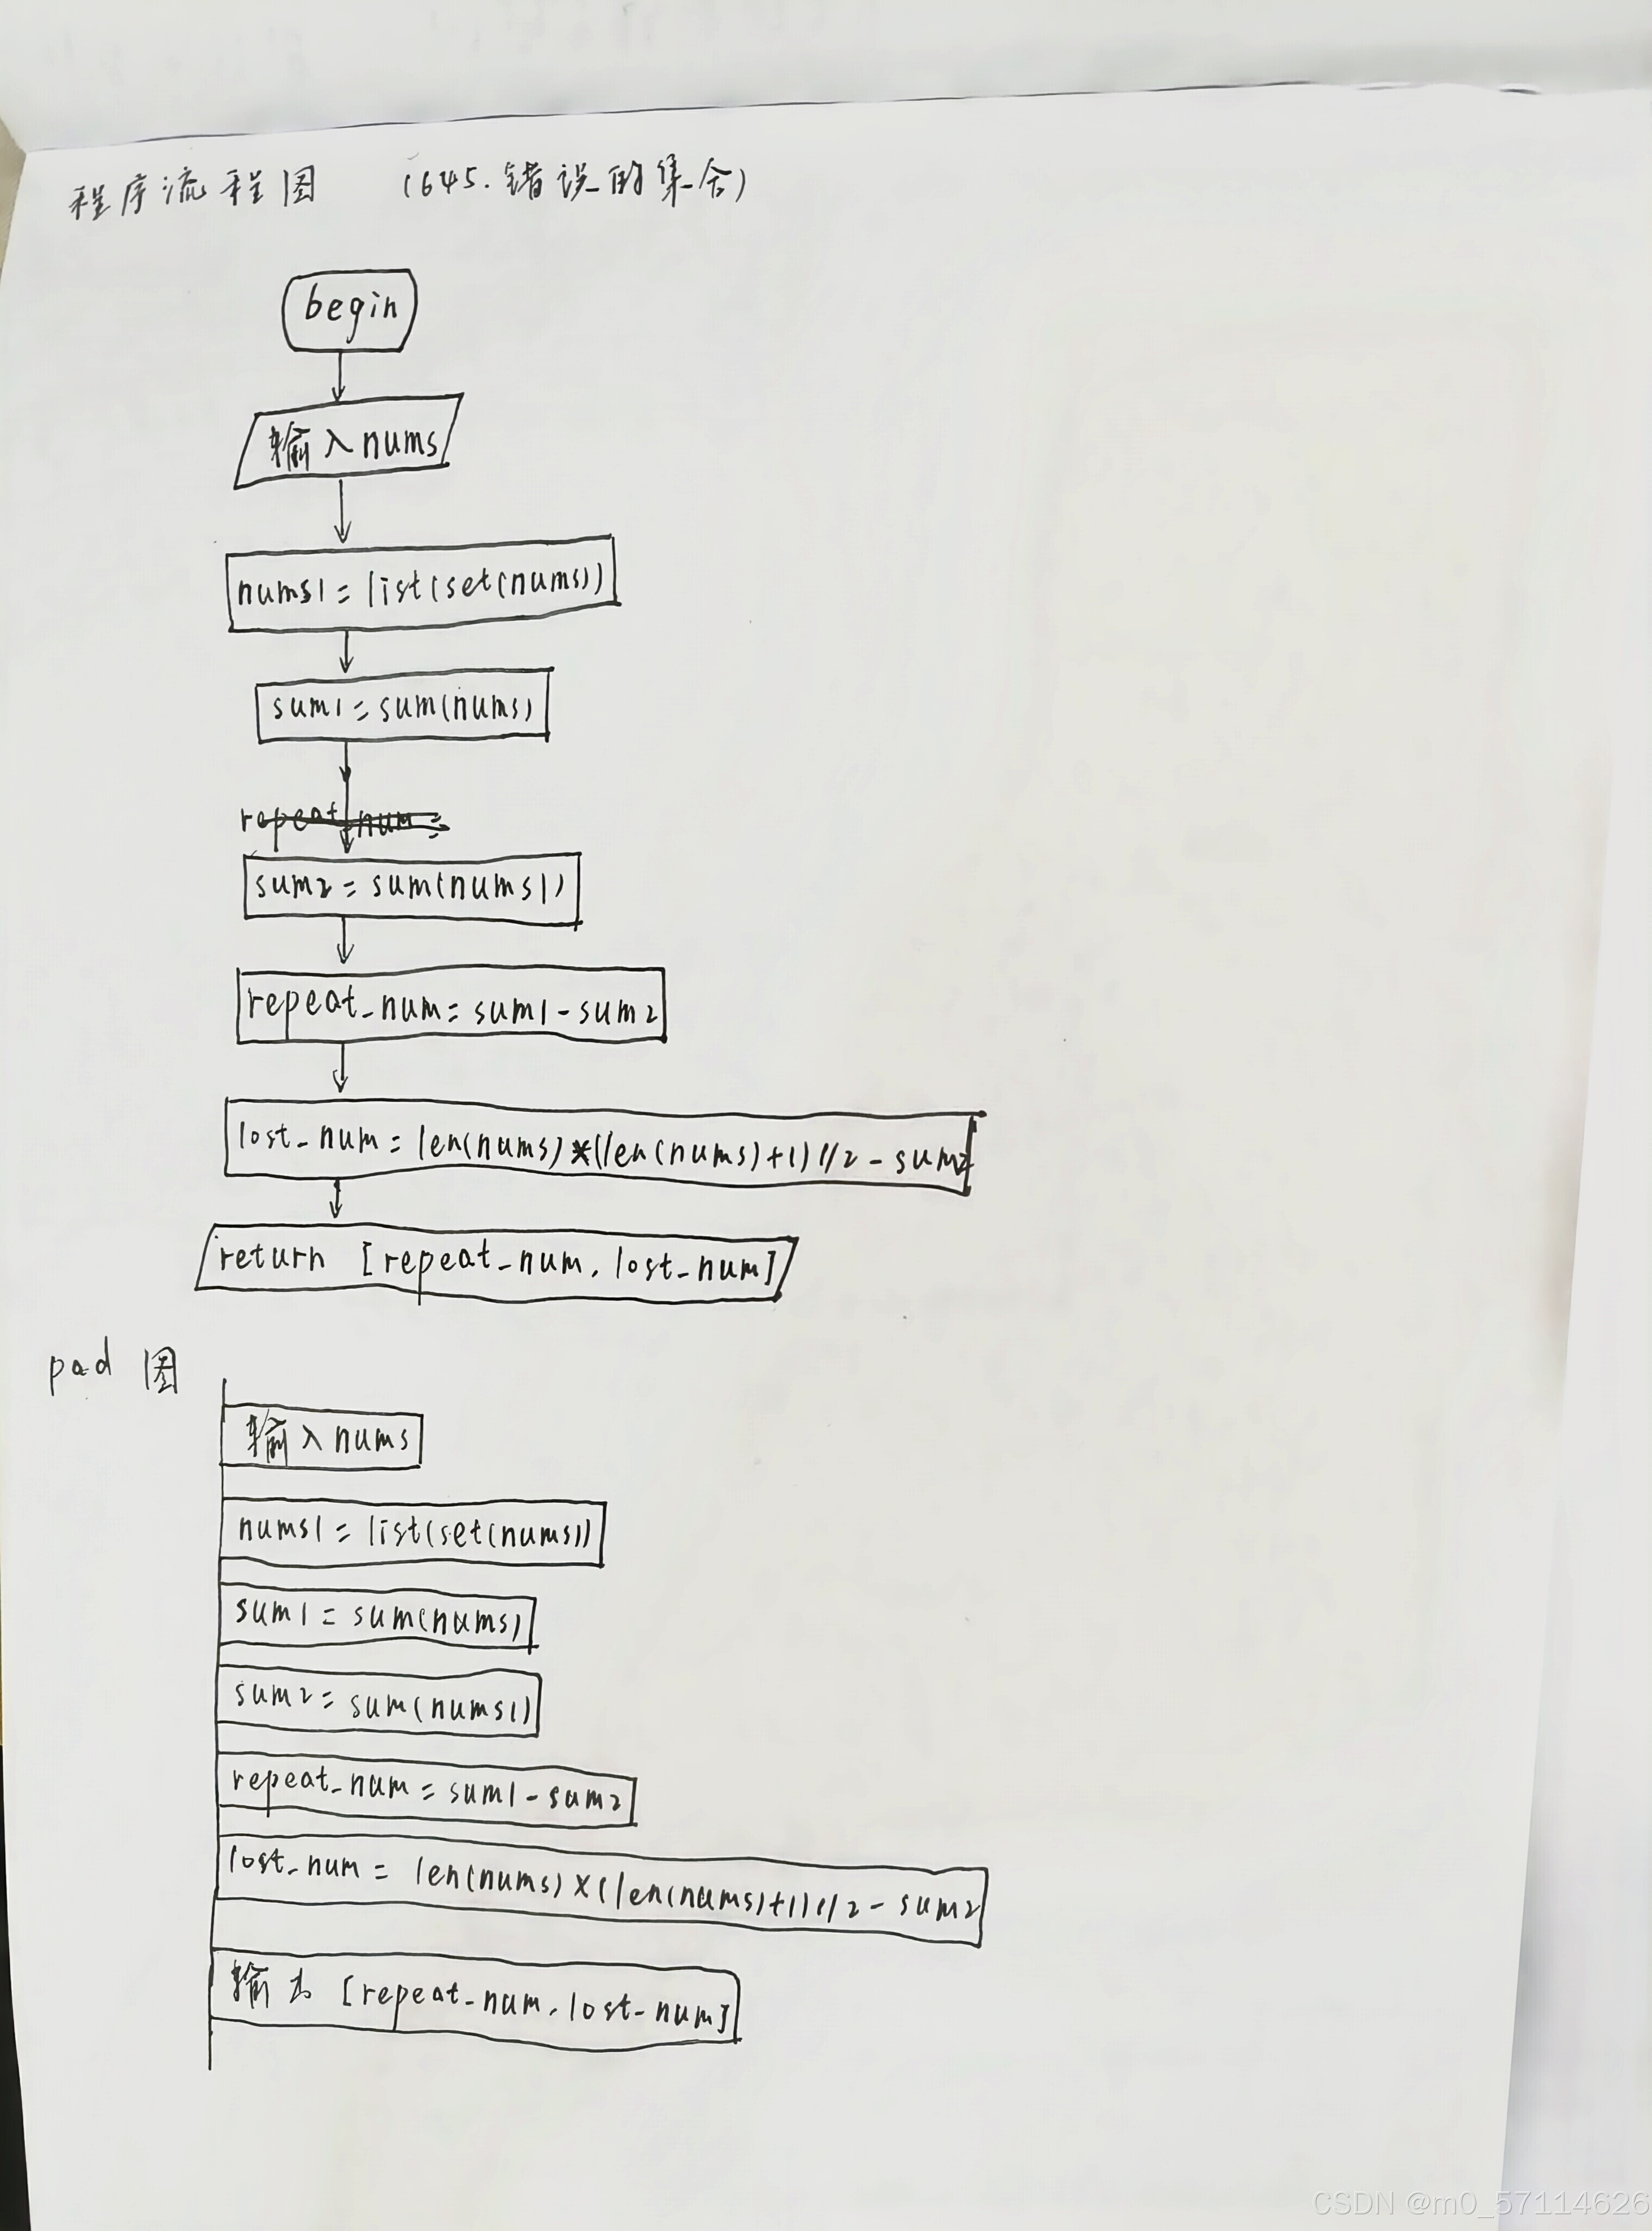 程序流程图 (645.错误的集合)
begin
输入nums
nums1 = list(set(nums))
sum1 = sum(nums)
repeat_num =
sum2 = sum(nums1)
repeat_num = sum1 - sum2
lost_num = len(nums)*(len(nums)+1)//2 - sum2
return [repeat_num, lost_num]
pad 图
输入nums
nums1 = list(set(nums))
sum1 = sum(nums)
sum2 = sum(nums1)
repeat_num = sum1 - sum2
lost_num = len(nums)×(len(nums)+1)//2 - sum2
输出 [repeat_num, lost_num]
CSDN @m0_57114626